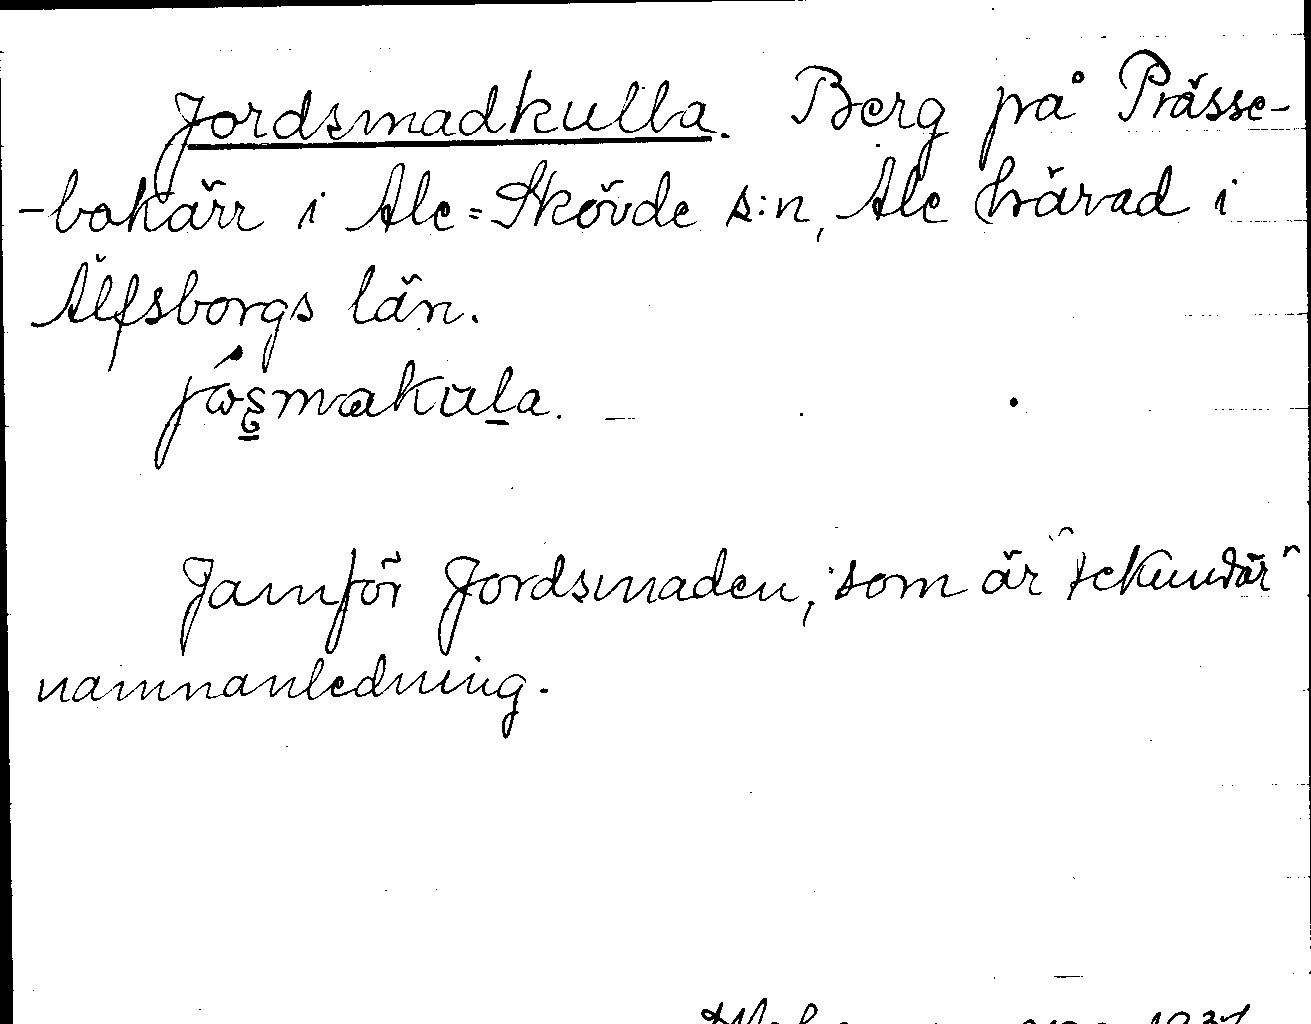 Jordsmadkulla. Berg på Prässe-
-bakärr i Ale=Skövde s:n, Ale härad i
Älfsborgs län.
jósmakula.
Jämför Jordsmaden, som är "sekundär"
namnanledning.
1937